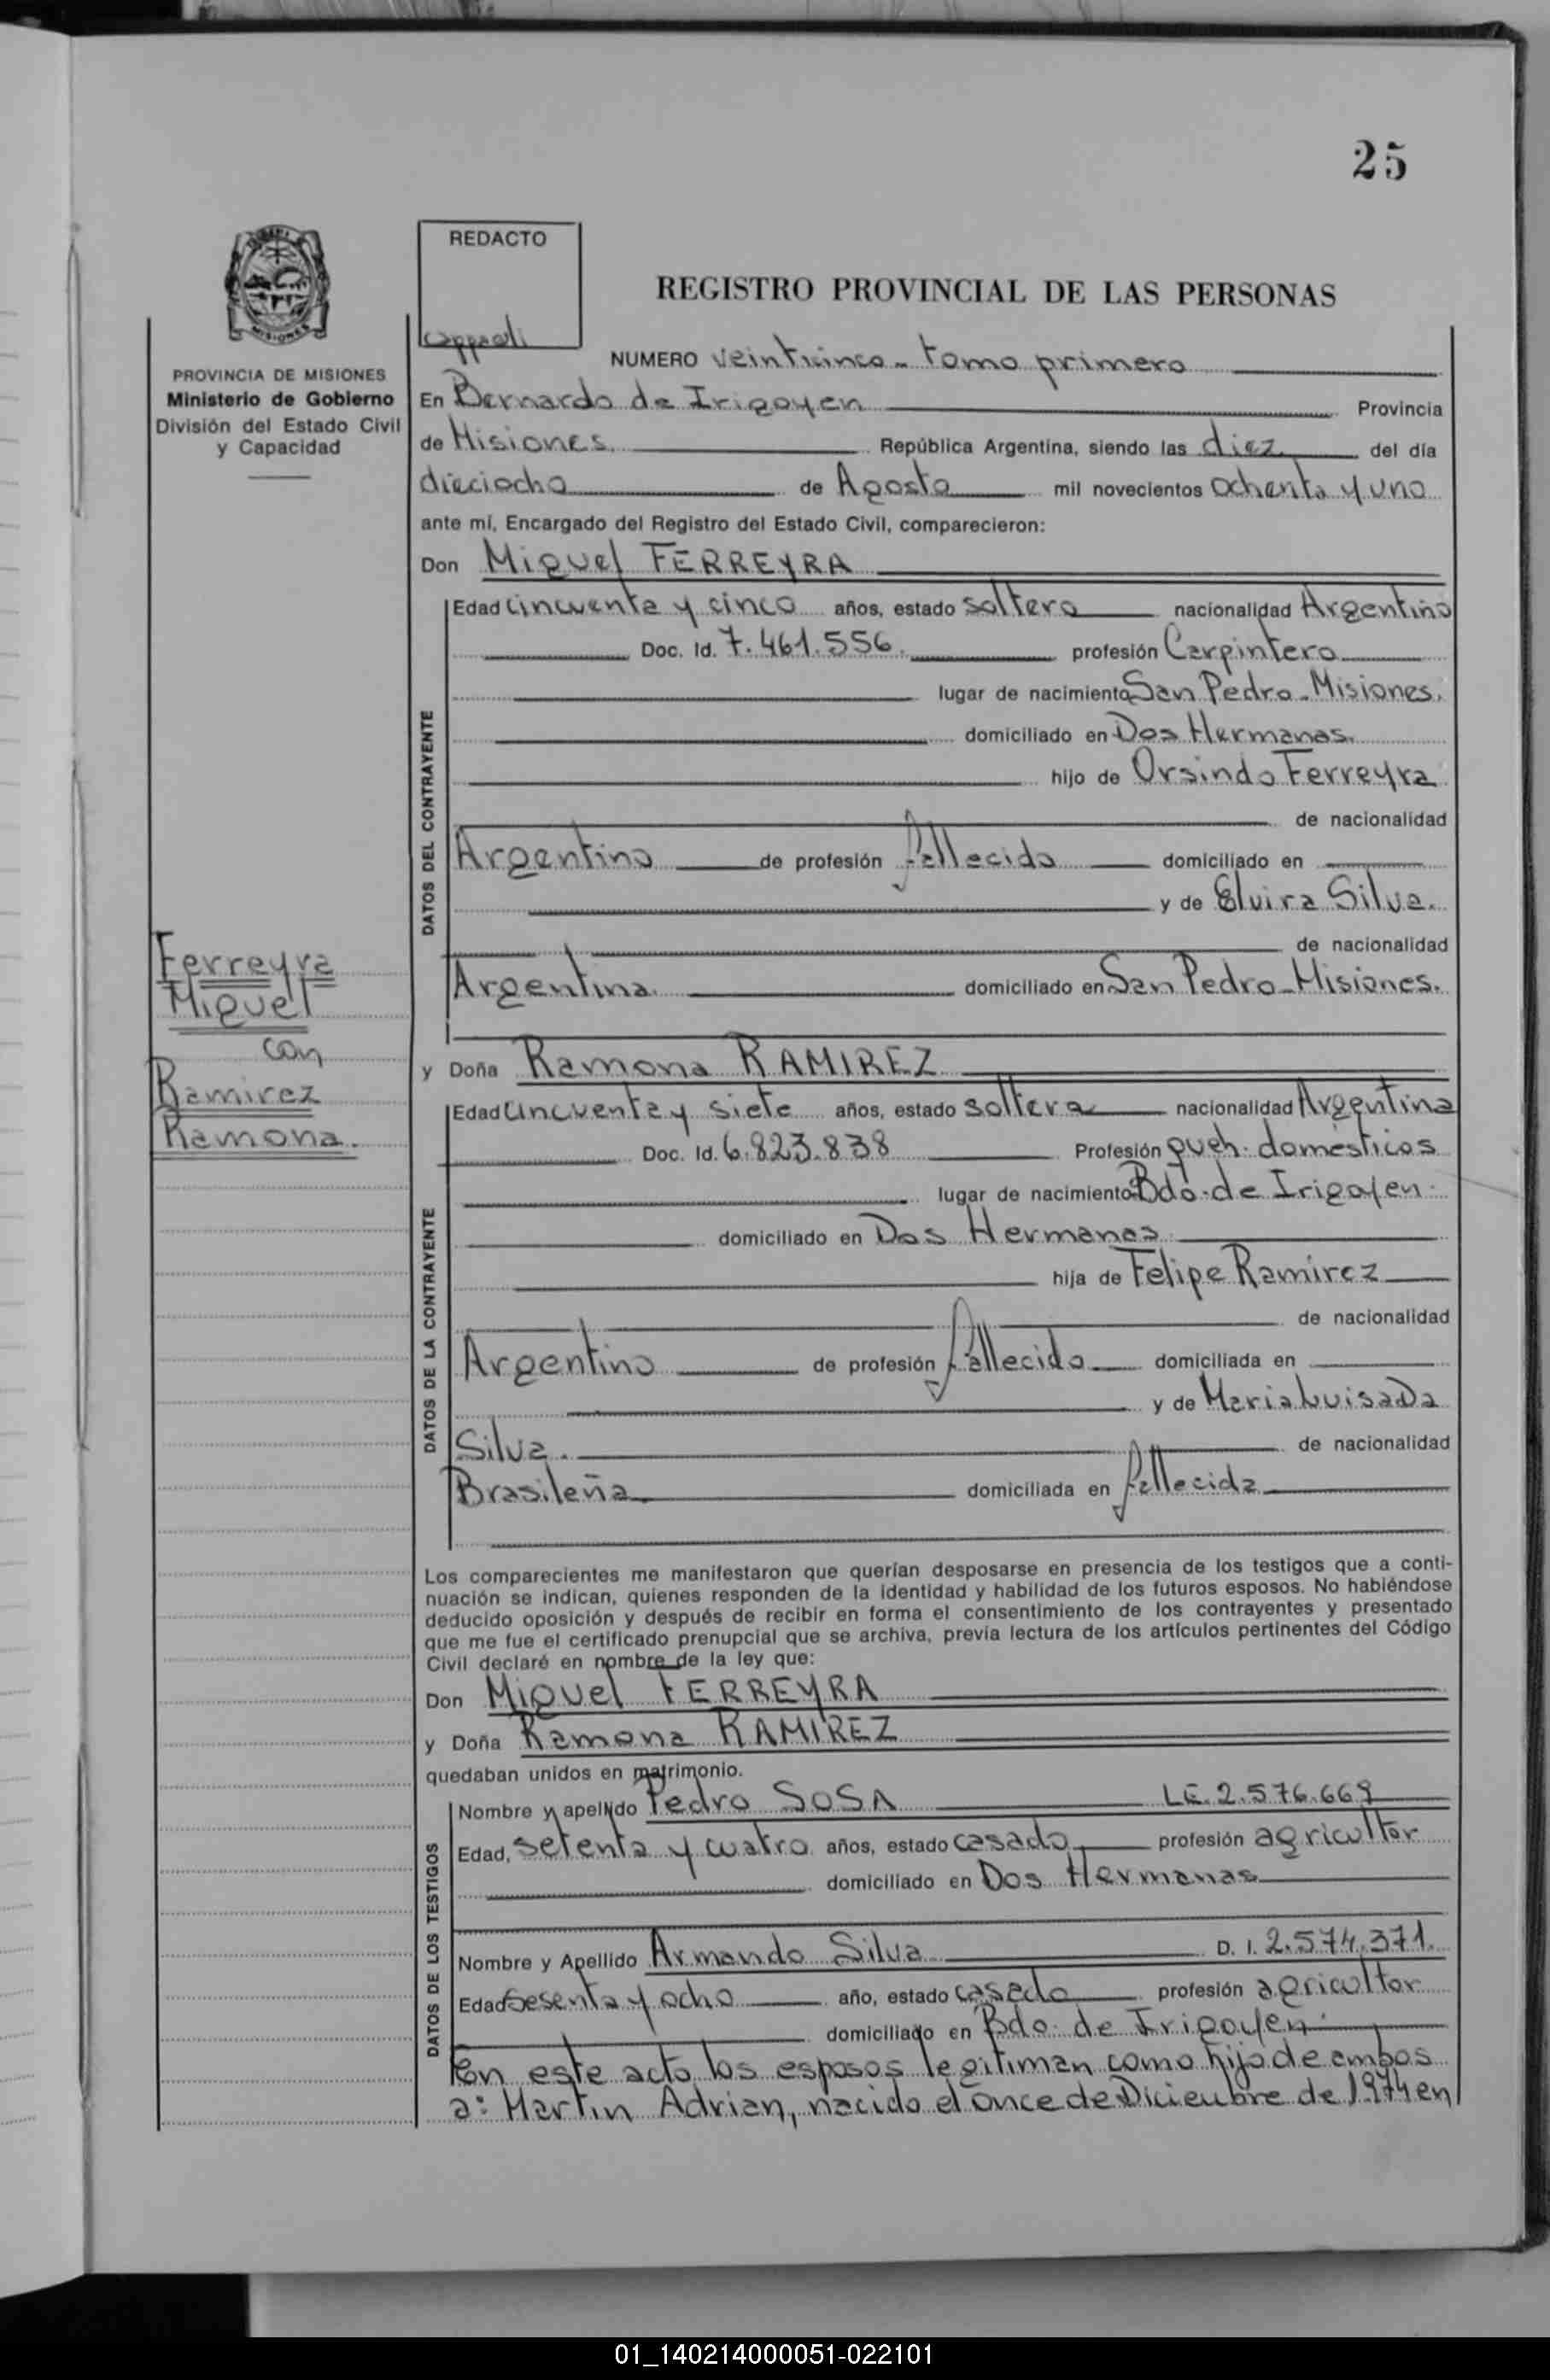 25
REDACTO
REGISTRO PROVINCIAL DE LAS PERSONAS
PROVINCIA DE MISIONES
Ministerio de Gobierno
División del Estado Civil
y Capacidad
NUMERO veinticinco - tomo primero
En Bernardo de Irigoyen Provincia
de Misiones República Argentina, siendo las diez del día
dieciocho de Agosto mil novecientos ochenta y uno
ante mí, Encargado del Registro del Estado Civil, comparecieron:
Don Miguel FERREYRA
DATOS DEL CONTRAYENTE
Edad cincuenta y cinco años, estado soltero nacionalidad Argentino
Doc. Id. 7.461.556. profesión Carpintero
lugar de nacimiento San Pedro - Misiones.
domiciliado en Dos Hermanas.
hijo de Orsindo Ferreyra
de nacionalidad
Argentino de profesión fallecido domiciliado en
y de Elvira Silva.
de nacionalidad
Argentina. domiciliado en San Pedro - Misiones.
Ferreyra
Miguel
con
Ramirez
Ramona.
y Doña Ramona RAMIREZ
DATOS DE LA CONTRAYENTE
Edad cincuenta y siete años, estado soltera nacionalidad Argentina
Doc. Id. 6.823.838 Profesión queh. domésticos
lugar de nacimiento Bdo. de Irigoyen.
domiciliado en Dos Hermanas
hija de Felipe Ramirez
de nacionalidad
Argentino de profesión fallecido domiciliada en
y de Maria Luisa Da
Silva. de nacionalidad
Brasileña domiciliada en fallecida
Los comparecientes me manifestaron que querían desposarse en presencia de los testigos que a conti-
nuación se indican, quienes responden de la identidad y habilidad de los futuros esposos. No habiéndose
deducido oposición y después de recibir en forma el consentimiento de los contrayentes y presentado
que me fue el certificado prenupcial que se archiva, previa lectura de los artículos pertinentes del Código
Civil declaré en nombre de la ley que:
Don Miguel FERREYRA
y Doña Ramona RAMIREZ
quedaban unidos en matrimonio.
DATOS DE LOS TESTIGOS
Nombre y apellido Pedro SOSA LE. 2.576.669
Edad, setenta y cuatro años, estado casado profesión agricultor
domiciliado en Dos Hermanas
Nombre y Apellido Armando Silva D. I. 2.574.371.
Edad sesenta y ocho año, estado casado profesión agricultor
domiciliado en Bdo. de Irigoyen.
En este acto los esposos legitiman como hijo de ambos
a: Martin Adrian, nacido el once de Diciembre de 1974 en
01_140214000051-022101